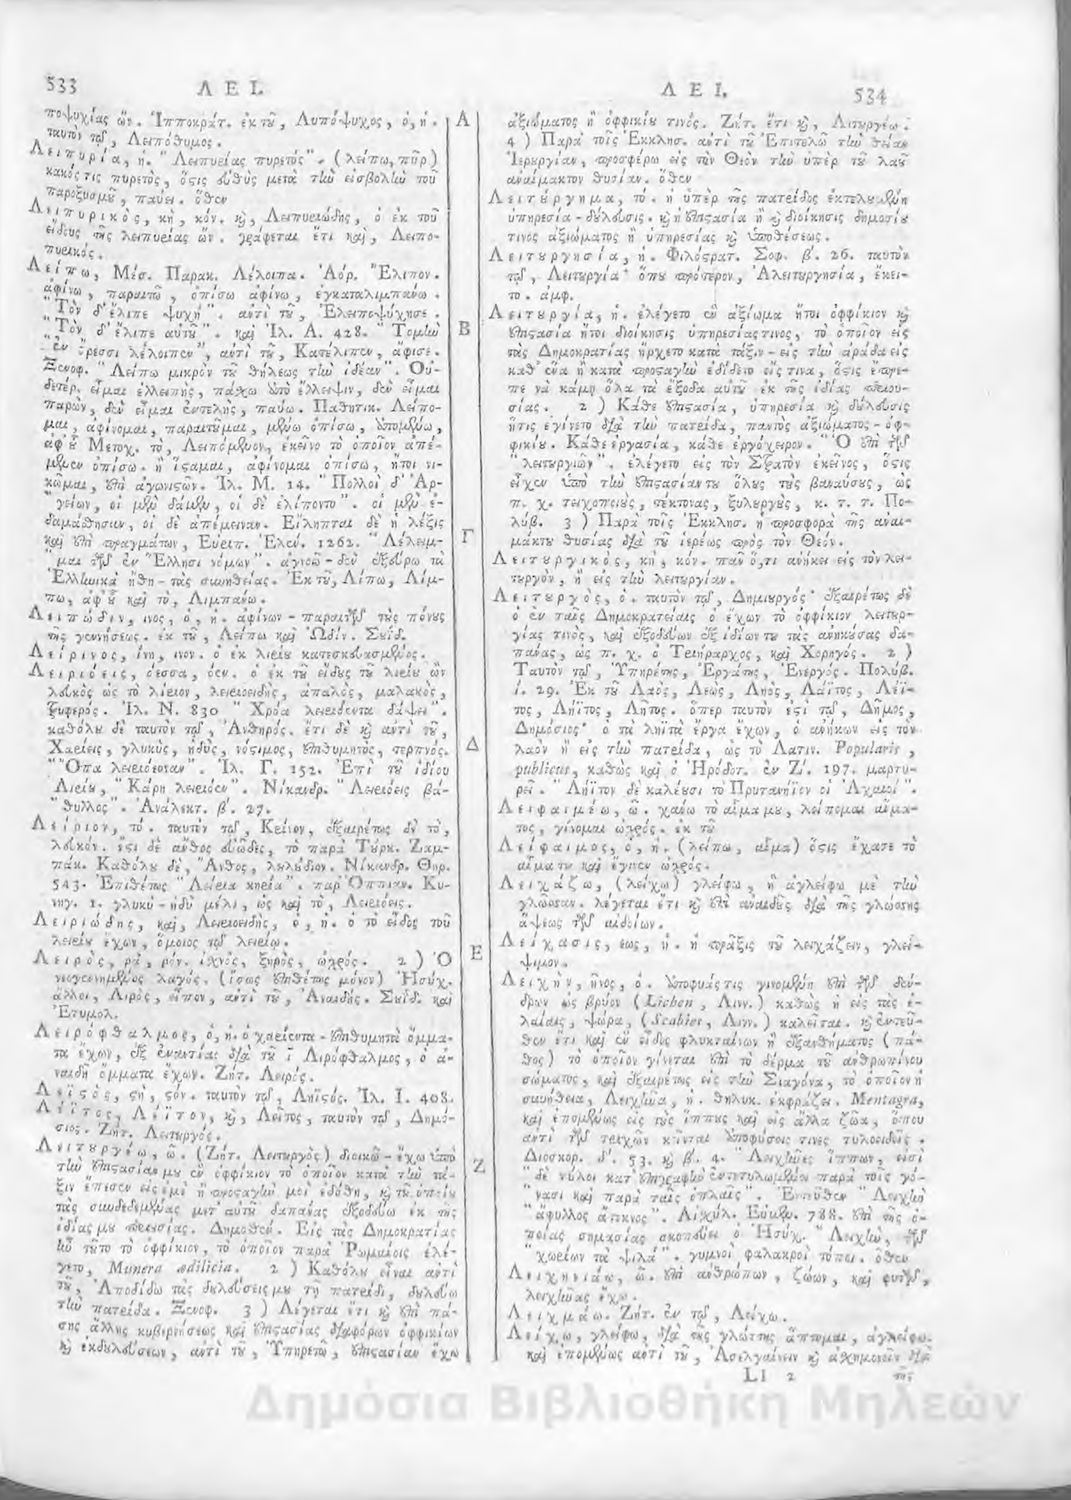 533 ΛΕΙ.
ποψυχίας ὤν. Ἱπποκράτ. ἐκ τοῦ, Λιπόψυχος, ὁ, ἡ.
ταυτὸν τῷ, Λειπόθυμος.
Λειπυρία, ἡ. "Λειπυρίας πυρετός". (λείπω, πῦρ)
κακός τις πυρετὸς, ὅστις εὐθὺς μετὰ τὴν εἰσβολὴν τοῦ
παροξυσμοῦ, παύει. ὅθεν
Λειπυρικός, κὴ, κόν. καὶ, Λειπυριώδης, ὁ ἐκ τοῦ
εἴδους τῆς λειπυρίας ὤν. γράφεται ἔτι καὶ, Λειπο-
πυρικός.
Λείπω, Μέσ. Παρακ. Λέλοιπα. Ἀόρ. Ἔλιπον.
ἀφίνω, παραιτῶ, ὀπίσω ἀφίνω, ἐγκαταλιμπάνω.
"Τὸν δ' ἔλιπε ψυχή". αὐτὶ τοῦ, Ἐλειποψύχησε.
"Τὸν δ' ἔλιπε αὐτοῦ". καὶ Ἰλ. Α. 428. "Τομὴν
"ἐν ὄρεσσι λέλοιπεν", αὐτὶ τοῦ, Κατέλιπεν, ἄφισε.
Ξενοφ. "Λείπω μικρὸν τοῦ θήλεως τὴν ἰδέαν". Οὐ-
δετέρ. εἶμαι ἐλλειπὴς, πάσχω ὑπὸ ἔλλειψιν, δὲν εἶμαι
παρὼν, δὲν εἶμαι ἐντελὴς, παύω. Παθητικ. Λείπο-
μαι, ἀφίνομαι, παραιτοῦμαι, μένω ὀπίσω, ὑπομένω,
ἀφ' οὗ Μετοχ. τὸ, Λειπόμενον, ἐκεῖνο τὸ ὁποῖον ἀπέ-
μενεν ὀπίσω. ἢ ἵσαμαι, ἀφίνομαι ὀπίσω, ἤτοι νι-
κῶμαι, ἐπὶ ἀγωνιστῶν. Ἰλ. Μ. 14. "Πολλοὶ δ' Ἀρ-
"γείων, οἱ μὲν δάμεν, οἱ δὲ ἐλίποντο". οἱ μὲν ἐ-
δαμάσθησαν, οἱ δὲ ἀπέμειναν. Εἴληπται δὲ ἡ λέξις
καὶ ἐπὶ πραγμάτων, Εὐριπ. Ἑλέν. 1262. "Λέλειμ-
"μαι τῶν ἐν Ἕλλησι νόμων". ἀγνοῶ - δὲν ἐξεύρω τὰ
Ἑλληνικὰ ἤθη - τὰς συνηθείας. Ἐκ τοῦ, Λίπω, Λίμ-
πω, ἀφ' οὗ καὶ τὸ, Λιμπάνω.
Λειπώδιν, ινος, ὁ, ἡ. ἀφίνων - παραιτῶν τοὺς πόνους
τῆς γεννήσεως. ἐκ τοῦ, Λείπω καὶ Ὠδίν. Σουΐδ.
Λείρινος, ίνη, ινον. ὁ ἐκ λιείου κατεσκευασμένος.
Λειριόεις, όεσσα, όεν. ὁ ἐκ τοῦ εἴδους τοῦ λιείου ὢν
λευκὸς ὡς τὸ λίειον, λειριοειδὴς, ἁπαλὸς, μαλακὸς,
ξυφερός. Ἰλ. Ν. 830 "Χρόα λειριόεντα δάψει".
καθόλου δὲ ταυτὸν τῷ, Ἀνθηρός. ἔτι δὲ καὶ αὐτὶ τοῦ,
Χαρίεις, γλυκὺς, ἡδὺς, νόσιμος, ἐπιθυμητὸς, τερπνός.
"Ὄπα λειριόεσσαν". Ἰλ. Γ. 152. Ἐπὶ τοῦ ἰδίου
Λιείου, "Κάρη λειριόεν". Νίκανδρ. "Λειριόεις βά-
"θυλλος". Ἀνάλεκτ. β'. 27.
Λείριον, τό. ταυτὸν τῷ, Κρίνον, ἐξαιρέτως δὲ τὸ,
λευκόν. ἔστι δὲ ἄνθος εὐῶδες, τὸ παρὰ Τούρκ. Ζαμ-
πάκ. Καθόλου δὲ, Ἄνθος, λουλούδιον. Νίκανδρ. Θηρ.
543. Ἐπιθέτως "Λείρια κηρία". παρ' Ὀππιαν. Κυ-
νηγ. 1. γλυκὺ - ἡδὺ μέλι, ὡς καὶ τὸ, Λειριόεις.
Λειριώδης, καὶ, Λειριοειδὴς, ὁ, ἡ. ὁ τὸ εἶδος τοῦ
λειρίου ἔχων, ὅμοιος τῷ λειρίῳ.
Λειρός, ρὰ, ρόν. ἰχνὸς, ξηρὸς, ὠχρός. 2) Ὁ
νεογεννημένος λαγός. (ἴσως ἐπιθέτως μόνον) Ἡσύχ.
ἄλλοι, Λιρὸς, εἶπον, αὐτὶ τοῦ, Ἀναιδής. Σουΐδ. καὶ
Ἐτυμολ.
Λειρόφθαλμος, ὁ, ἡ. ὁ χαρίεντα - ἐπιθυμητὰ ὄμμα-
τα ἔχων, ἐξ ἐναντίας διὰ τοῦ ῑ Λιρόφθαλμος, ὁ ἀ-
ναιδῆ ὄμματα ἔχων. Ζήτ. Λειρός.
Λεϊστός, στὴ, στόν. ταυτὸν τῷ, Ληϊστός. Ἰλ. Ι. 408.
Λεῖτος, Λέϊτον, καὶ, Λεῖτος, ταυτὸν τῷ, Δημό-
σιος. Ζήτ. Λειτουργός.
Λειτουργέω, ῶ. (Ζήτ. Λειτουργὸς) διοικῶ - ἔχω ὑπὸ
τὴν ἐπιστασίαν μου ἐν ὀφφίκιον τὸ ὁποῖον κατὰ τὴν τά-
ξιν ἔπεσεν εἰς ἐμὲ ἢ προσαγὴν μοὶ ἐδόθη, καὶ τὰ ὁποῖα
τὰς συνδεδεμένας μετ' αὐτοῦ δαπάνας ἐξοδεύω ἐκ τῆς
ἰδίας μου περιουσίας. Δημοσθέν. Εἰς τὰς Δημοκρατίας
ἦν τοῦτο τὸ ὀφφίκιον, τὸ ὁποῖον παρὰ Ῥωμαίοις ἐλέ-
γετο, Munera ædilicia. 2) Καθόλου εἶναι αὐτὶ
τοῦ, Ἀποδίδω τὰς δουλεύσεις μου τῇ πατρίδι, δουλεύω
τὴν πατρίδα. Ξενοφ. 3) Λέγεται ἔτι καὶ ἐπὶ πά-
σης ἄλλης κυβερνήσεως καὶ ἐπιστασίας διαφόρων ὀφφικίων
καὶ ἐκδουλεύσεων, αὐτὶ τοῦ, Ὑπηρετῶ, ἐπιστασίαν ἔχω
Α
Β
Γ
Δ
Ε
Ζ
ΛΕΙ. 534
ἀξιώματος ἢ ὀφφικίου τινός. Ζήτ. ἔτι καὶ, Λιτουργέω.
4) Παρὰ τοῖς Ἐκκλησ. αὐτὶ τοῦ Ἐπιτελῶ τὴν θείαν
Ἱερουργίαν, προσφέρω εἰς τὸν Θεὸν τὴν ὑπὲρ τοῦ λαοῦ
ἀναίμακτον θυσίαν. ὅθεν
Λειτούργημα, τό. ἡ ὑπὲρ τῆς πατρίδος ἐκτελουμένη
ὑπηρεσία - δούλευσις. καὶ ἡ ἐπιστασία ἢ καὶ διοίκησις δημοσίου
τινὸς ἀξιώματος ἢ ὑπηρεσίας καὶ ὑποθέσεως.
Λειτουργησία, ἡ. Φιλόστρατ. Σοφ. β'. 26. ταυτὸν
τῷ, Λειτουργία· ὅπου πρότερον, Ἀλειτουργησία, ἔκει-
το. ἀμφ.
Λειτουργία, ἡ. ἐλέγετο ἐν ἀξίωμα ἤτοι ὀφφίκιον καὶ
ἐπιστασία ἤτοι διοίκησις ὑπηρεσίας τινος, τὸ ὁποῖον εἰς
τὰς Δημοκρατίας ἤρχετο κατὰ τάξιν - εἰς τὴν ἀράδα εἰς
καθ' ἕνα ἢ κατὰ προσαγὴν ἐδίδετο εἴς τινα, ὅστις ἔπρε-
πε νὰ κάμῃ ὅλα τὰ ἔξοδα αὐτοῦ ἐκ τῆς ἰδίας περιου-
σίας. 2) Κάθε ἐπιστασία, ὑπηρεσία καὶ δούλευσις
ἥτις ἐγίνετο διὰ τὴν πατρίδα, παντὸς ἀξιώματος - ὀφ-
φικίου. Κάθε ἐργασία, κάθε ἐργόχειρον. "Ὁ ἐπὶ τῶν
"λειτουργιῶν". ἐλέγετο εἰς τὸν Στρατὸν ἐκεῖνος, ὅστις
εἶχεν ὑπὸ τὴν ἐπιστασίαν του ὅλους τοὺς βαναύσους, ὡς
π. χ. τειχοποιοὺς, τέκτονας, ξυλουργοὺς, κ. τ. τ. Πο-
λύβ. 3) Παρὰ τοῖς Ἐκκλησ. ἡ προσφορὰ τῆς ἀναι-
μάκτου θυσίας διὰ τοῦ ἱερέως πρὸς τὸν Θεόν.
Λειτουργικός, κὴ, κόν. πᾶν ὅ,τι ἀνήκει εἰς τὸν λει-
τουργὸν, ἢ εἰς τὴν λειτουργίαν.
Λειτουργός, ὁ. ταυτὸν τῷ, Δημιουργός· ἐξαιρέτως δὲ
ὁ ἐν ταῖς Δημοκρατείαις ὁ ἔχων τὸ ὀφφίκιον λειτουρ-
γίας τινὸς, καὶ ἐξοδεύων ἐξ ἰδίων τὰς ἀνηκούσας δα-
πάνας, ὡς π. χ. ὁ Τριήραρχος, καὶ Χορηγός. 2)
Ταυτὸν τῷ, Ὑπηρέτης, Ἐργάτης, Ἐνεργός. Πολύβ.
ί. 29. Ἐκ τοῦ Λαὸς, Λεὼς, Ληὸς, Λάϊτος, Λέϊ-
τος, Λήϊτος, Λῇτος. ὅπερ ταυτὸν ἐστὶ τῷ, Δῆμος,
Δημόσιος· ὁ τὰ ληϊτὰ ἔργα ἔχων, ὁ ἀνήκων εἰς τὸν
λαὸν ἢ εἰς τὴν πατρίδα, ὡς τὸ Λατιν. Popularis,
publicus, καθὼς καὶ ὁ Ἡρόδοτ. ἐν Ζ'. 197. μαρτυ-
ρεῖ. "Λήϊτον δὲ καλέουσι τὸ Πρυτανήϊον οἱ Ἀχαιοί".
Λειφαιμέω, ῶ. χάνω τὸ αἷμα μου, λείπομαι αἵμα-
τος, γίνομαι ὠχρός. ἐκ τοῦ
Λείφαιμος, ὁ, ἡ. (λείπω, αἷμα) ὅστις ἔχασε τὸ
αἷμά του καὶ ἔγινεν ὠχρός.
Λειχάζω, (λείχω) γλείφω, ἢ ἀγλείφω μὲ τὴν
γλῶσσαν. λέγεται ἔτι καὶ ἐπὶ ἀναιδοῦς διὰ τῆς γλώσσης
ἅψεως τῶν αἰδοίων.
Λείχασις, εως, ἡ. ἡ πρᾶξις τοῦ λειχάζειν, γλεί-
ψιμον.
Λειχήν, ῆνος, ὁ. ὑποφυάς τις γινομένη ἐπὶ τῶν δέν-
δρων ὡς βρύον (Lichen, Λινν.) καθὼς ἡ εἰς τὰς ἐ-
λαίας, ψώρα, (Scabies, Λινν.) καλεῖται. καὶ ἐντεῦ-
θεν ἔτι καὶ ἐν εἶδος φλυκταίνων ἢ ἐξανθήματος (πά-
θος) τὸ ὁποῖον γίνεται ἐπὶ τὸ δέρμα τοῦ ἀνθρωπίνου
σώματος, καὶ ἐξαιρέτως εἰς τὴν Σιαγόνα, τὸ ὁποῖον ἡ
συνήθεια, Λειχῆνα, ἡ. θηλυκ. ἐκφράζει. Mentagra,
καὶ ἑπομένως εἰς τοὺς ἵππους καὶ εἰς ἄλλα ζῶα, ὅπου
αὐτὶ τῶν τριχῶν κεῖνται ὑποφύσεις τινὲς τυλοειδεῖς.
Διοσκορ. δ'. 53. καὶ β'. 4. "Λειχῆνες ἵππων, εἰσὶ
"δὲ τύλοι κατ' ἐπιγραφὴν ἐντετυλωμένοι παρὰ τοῖς γό-
"νασι καὶ παρὰ ταῖς ὁπλαῖς". Ἐντεῦθεν "Λειχὴν
"ἄφυλλος ἄτεκνος". Αἰσχύλ. Εὐμεν. 788. ἐπὶ τῆς ὁ-
ποίας σημασίας σκοπεύει ὁ Ἡσύχ. "Λειχὴν, τῶν
"χωρίων τὰ ψιλά". γυμνοὶ φαλακροὶ τόποι. ὅθεν
Λειχηνιάω, ῶ. ἐπὶ ἀνθρώπων, ζώων, καὶ φυτῶν,
λειχῆνας ἔχω.
Λειχμάω. Ζήτ. ἐν τῷ, Λείχω.
Λείχω, γλείφω, διὰ τῆς γλώττης ἅπτομαι, ἀγλείφω.
καὶ ἑπομένως αὐτὶ τοῦ, Ἀσελγαίνειν καὶ ἀσχημονεῖν διὰ
Ll 2 τῆς
Δημόσια Βιβλιοθήκη Μηλεών